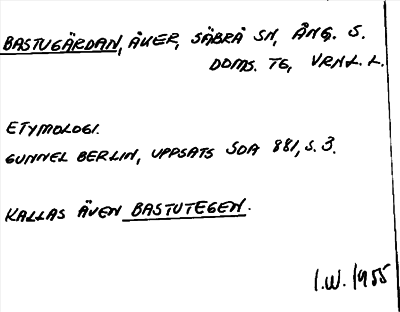 BASTUGÄRDAN, ÅKER, SÄBRÅ SN, ÅNG. S.
DOMS. TG, VRNL. L.
ETYMOLOGI.
GUNNEL BERLIN, UPPSATS SOA 881, S. 3.
KALLAS ÄVEN BASTUTEGEN.
I.W. 1955